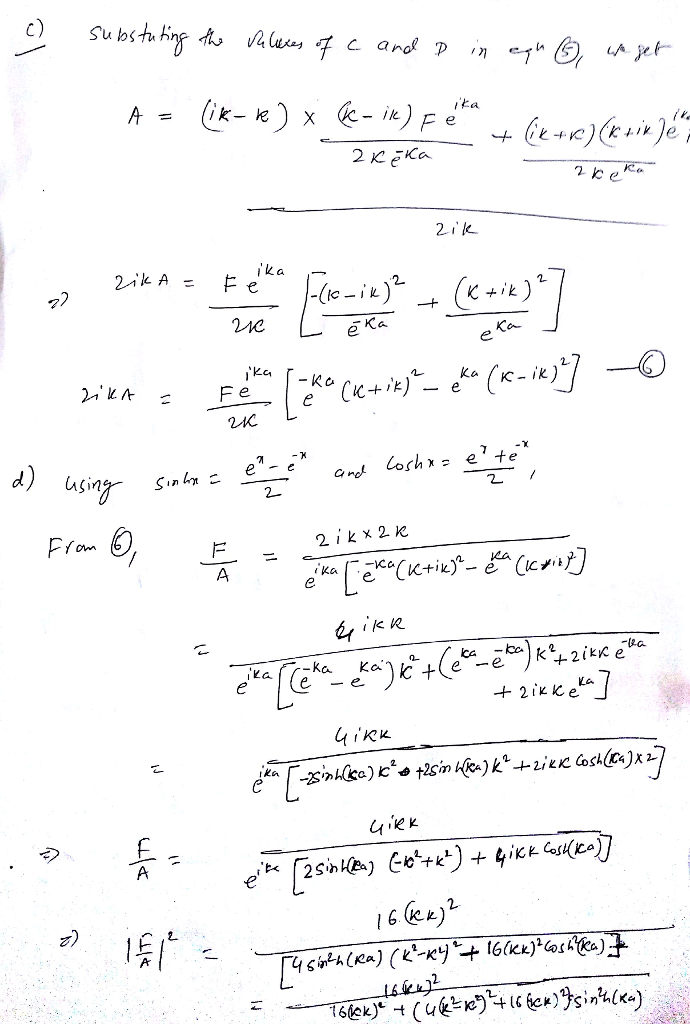 c) Substuting the values of C and D in eqn ⑤, we get
A = (ik-κ) × (κ-ik) F e^{ika} / 2κ e^{-κa} + (ik+κ)(κ+ik) e^{ika} / 2κ e^{κa}
2ik
=> 2ik A = F e^{ika} / 2κ [ -(κ-ik)² / e^{-κa} + (κ+ik)² / e^{κa} ]
2ikA = F e^{ika} / 2κ [ e^{-κa} (κ+ik)² - e^{κa} (κ-ik)² ] — ⑥
d) using sinhx = e^x - e^{-x} / 2 and coshx = e^x + e^{-x} / 2 ,
From ⑥, F / A = 2ik×2κ / e^{ika} [ e^{-κa} (κ+ik)² - e^{κa} (κ-ik)² ]
= 4ikκ / e^{ika} [ (e^{-κa} - e^{κa}) κ² + (e^{κa} - e^{-κa}) k² + 2ikκ e^{-κa}
+ 2ikκ e^{κa} ]
= 4ikκ / e^{ika} [ -2sinh(κa) κ² + 2sinh(κa) k² + 2ikκ cosh(κa) × 2 ]
=> F / A = 4ikκ / e^{ika} [ 2sinh(κa) (-κ²+k²) + 4ikκ cosh(κa) ]
=> |F/A|² = 16(κk)² / [ 4sin²h(κa) (k²-κ²)² + 16(kκ)² cosh²(κa) ]
= 16(κk)² / 16(κk)² + (4(k²-κ²)² + 16(κk)²) sin²h(κa)